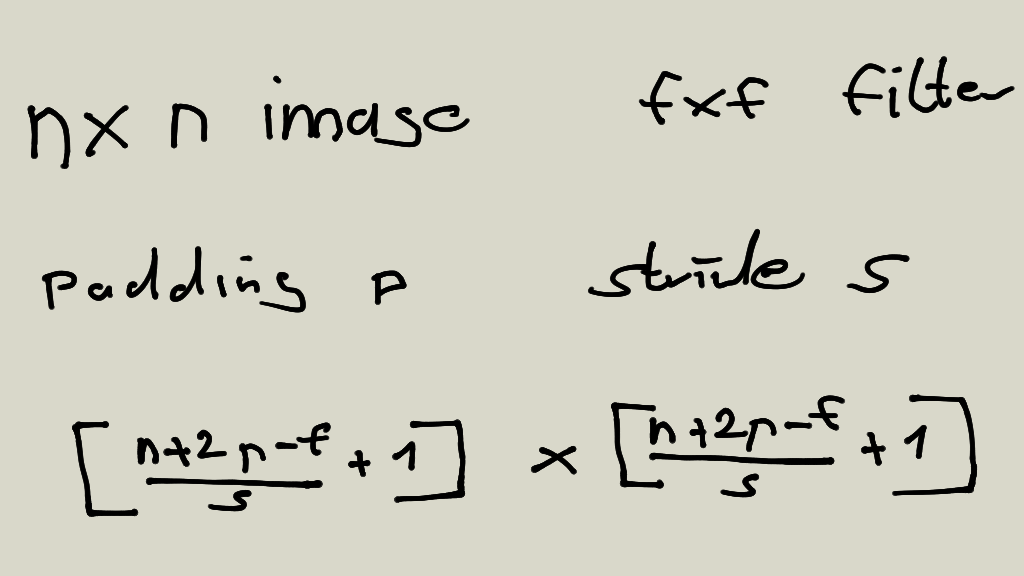 n x n image f x f filter
padding p stride s
[n+2p-f/s + 1] x [n+2p-f/s + 1]